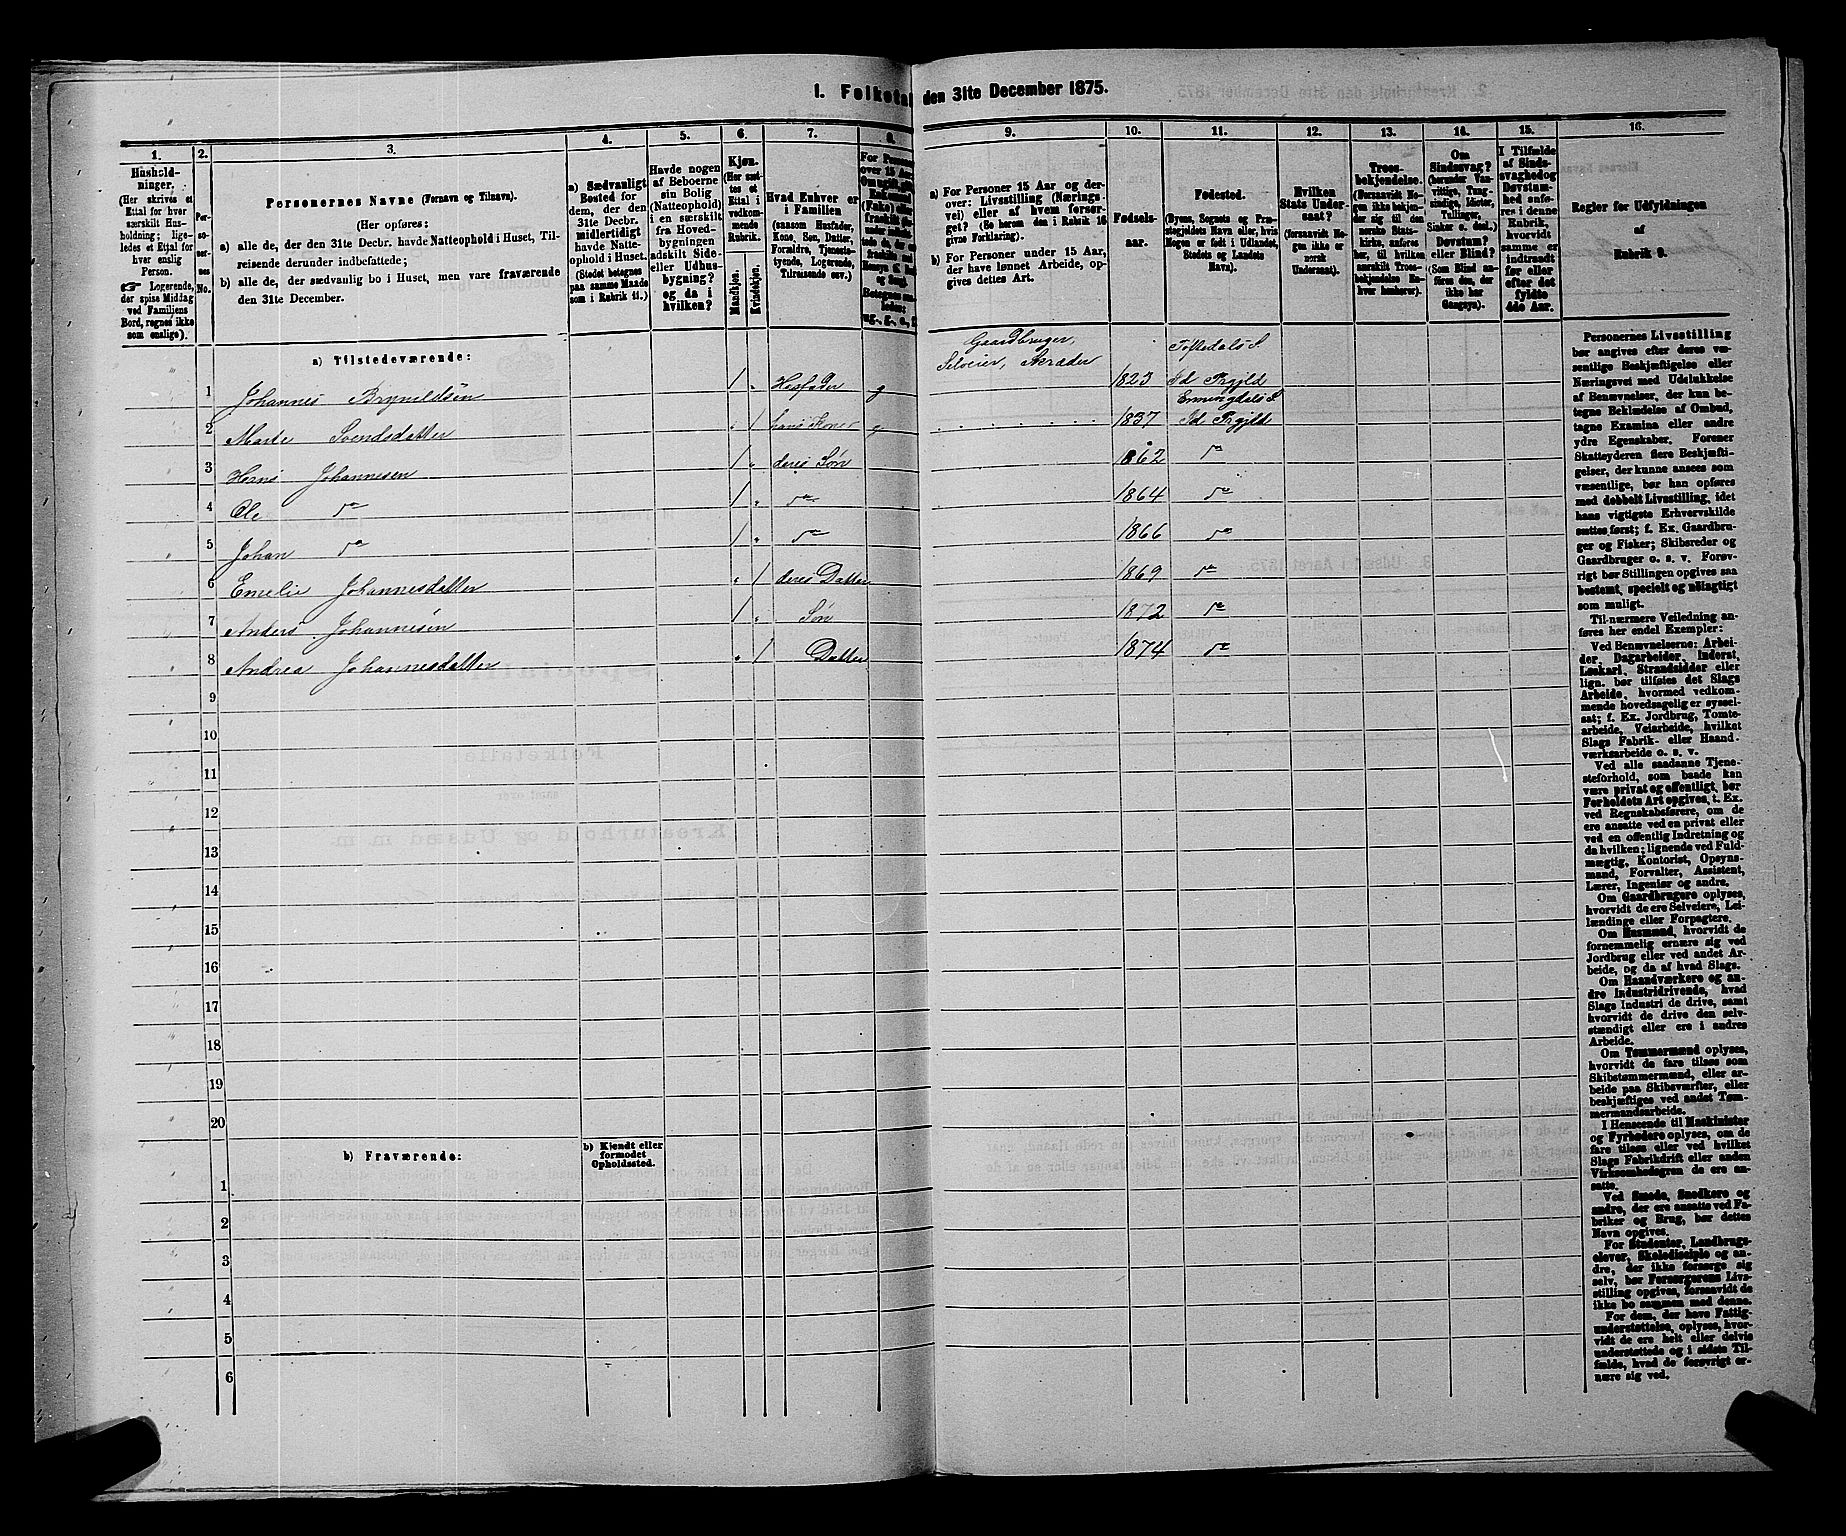 1. Folketal den 31te December 1875.
1. 2. 3. 4. 5. 6. 7. 8. 9. 10. 11. 12. 13. 14. 15. 16.
Hushold-
ninger.
(Her skrives et
Ettal for hver
særskilt Hus-
holdning; lige-
ledes et Ettal for
hver enslig
Person.
☞ Logerende,
der spise Middag
ved Familiens
Bord, regnes ikke
som enslige).
Per-
so-
ner-
nes
No.
Personernes Navne (Fornavn og Tilnavn).
(Her opføres:
a) alle de, der den 31te Decbr. havde Natteophold i Huset, Til-
reisende derunder indbefattede;
b) alle de, der sædvanlig bo i Huset, men vare fraværende
den 31te December.
a) Sædvanligt
Bosted for
dem, der den
31te Decbr.
midlertidigt
havde Natte-
ophold i Huset.
(Stedet betegnes
paa samme Maade
som i Rubrik 11.)
Havde nogen
af Beboerne
sin Bolig
(Natteophold)
i en særskilt
fra Hoved-
bygningen
adskilt Side-
eller Udhus-
bygning?
og da i
hvilken?
Kjøn.
(Her sæt-
tes et
Ettal i
vedkom-
mende
Rubrik.
Mandkjøn.
Kvindekjøn.
Hvad Enhver er
i Familien
(saasom Husfader,
Kone, Søn, Datter,
Forældre, Tjeneste-
tyende, Logerende,
Tilreisende osv.)
a) For Personer 15 Aar og der-
over: Livsstilling (Nærings-
vei) eller af hvem forsør-
get? (Se herom den i Rubrik 16
givne Forklaring).
b) For Personer under 15 Aar,
der have lønnet Arbeide, op-
gives dettes Art.
Fødsels-
aar.
Fødested.
(Byens, Sognets og Præ-
stegjeldets Navn eller, hvis
Nogen er født i Udlandet,
Stedets og Landets
Navn).
Hvilken
Stats Under-
saat?
(forsaavidt No-
gen ikke er
norsk
Undersaat).
Troes-
bekjendelse.
(Forsaavidt No-
gen ikke bekjen-
der sig til den
norske Stats-
kirke, anføres
her, til hvilken
særskilt Troes-
bekjendelse En-
hver henhører).
Om
Sindssvag?
(herunder Van-
vittige, Tung-
sindige, Idioter,
Tullinger,
Sinker o. desl.)
Døvstum?
eller Blind?
(Som Blind an-
føres den, der
ikke har
Gangsyn).
I Tilfælde
af Sinds-
svaghed og
Døvstum-
hed anfø-
res i denne
Rubrik,
hvorvidt
samme er
indtraadt
før eller
efter det
fyldte
4de Aar.
Regler for Udfyldningen
af
Rubrik 9.
a) Tilstedeværende:
Gaardbruger,
Selveier, Skræder
Tostedals S.
1 Johannes Bryneldsen 1 Husfader g 1823 Id Prgjld
Enningdals S.
2 Marte Svendsdatter 1 hans Kone g 1837 Id Prgjld
3 Hans Johannesen 1 deres Søn 1862 do
4 Ole do 1 do 1864 do
5 Johan do 1 do 1866 do
6 Emelie Johannesdatter 1 deres Datter 1869 do
7 Anders Johannesen 1 Søn 1872 do
8 Andrea Johannesdatter 1 Datter 1874 do
9
10
11
12
13
14
15
16
17
18
19
20
b) Fraværende:
b) Kjendt eller
formodet
Opholdssted.
1
2
3
4
5
6
Personernes Livsstilling
bør angives efter deres væ-
sentlige Beskjæftigelse eller
Næringsvei med Udelukkelse
af Benævnelser, der kun be-
tegne Beklædelse af Ombud,
tagne Examina eller andre
ydre Egenskaber. Forener
Skatteyderen flere Beskjæfti-
gelser, der kunne ansees som
væsentlige, bør han opføres
med dobbelt Livsstilling, idet
hans vigtigste Erhvervskilde
sættes først; f. Ex. Gaardbru-
ger og Fisker; Skibsreder og
Gaardbruger o. s. v. Forøv-
rigt bør Stillingen opgives saa
bestemt, specielt og nøiagtigt
som muligt.
Til nærmere Veiledning an-
føres her endel Exempler:
Ved Benævnelserne: Arbei-
der, Dagarbeider, Inderst,
Løskarl, Strandsidder eller
lign. bør tilføies det Slags
Arbeide, hvormed vedkom-
mende hovedsagelig er syssel-
sat; f. Ex. Jordbrug, Tomte-
arbeide, Veiarbeide, hvilket
Slags Fabrik- eller Haand-
værksarbeide o. s. v.
Ved alle saadanne Tjene-
steforhold, som baade kan
være privat og offentligt, bør
Forholdets Art opgives, t. Ex.
ved Regnskabsførere, om de
ere ansatte ved en privat eller
ved en offentlig Indretning og
da hvilken; lignende ved Fuld-
mægtig, Kontorist, Opsyns-
mand, Forvalter, Assistent,
Lærer, Ingeniør og andre.
Om Gaardbrugere oplyses,
hvorvidt de ere Selveiere, Lei-
lændinge eller Forpagtere.
Om Husmænd, hvorvidt de
fornemmelig ernære sig ved
Jordbrug eller ved andet Ar-
beide, og da af hvad Slags.
Om Haandværkere og an-
dre Industridrivende, hvad
Slags Industri de drive, samt
hvorvidt de drive den selv-
stændigt eller ere i andres
Arbeide.
Om Tømmermænd oplyses,
hvorvidt de fare tilsøs som
Skibstømmermænd, eller ar-
beide paa Skibsværfter, eller
beskjæftiges ved andet Tøm-
mermandsarbeide.
I Henseende til Maskinister
og Fyrbødere oplyses, om de
fare tilsøs eller ved hvilket
Slags Fabrikdrift eller anden
Virksomhedsgren de ere an-
satte.
Ved Smede, Snedkere og
andre, der ere ansatte ved Fa-
briker og Brug, bør dettes
Navn opgives.
For Studenter, Landbrugs-
elever, Skoledisciple og an-
dre, der ikke forsørge sig
selv, bør Forsørgerens Livs-
stilling opgives, forsaavidt de
ikke bo sammen med denne.
For dem, der have Fattig-
understøttelse, oplyses, hvor-
vidt de ere helt eller delvis
understøttede og i sidste Til-
fælde, hvad de forøvrigt er-
nære sig ved.